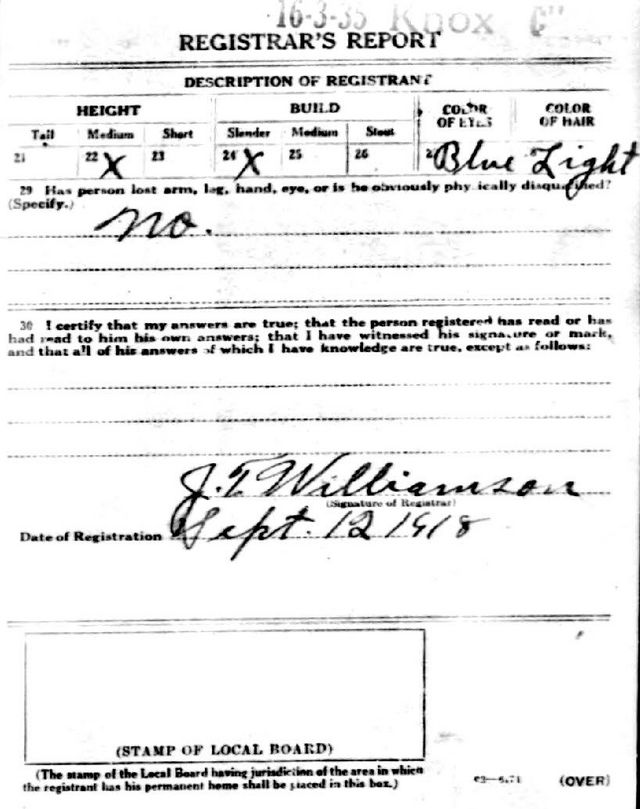 16-3-35 Knox "C"
REGISTRAR'S REPORT
DESCRIPTION OF REGISTRANT
HEIGHT BUILD COLOR OF EYES COLOR OF HAIR
Tall Medium Short Slender Medium Stout
21 22 X 23 24 X 25 26 2 Blue Light
29 Has person lost arm, leg, hand, eye, or is he obviously physically disqualified?
(Specify.)
No.
30 I certify that my answers are true; that the person registered has read or has
had read to him his own answers; that I have witnessed his signature or mark,
and that all of his answers of which I have knowledge are true, except as follows:
J. T. Williamson
(Signature of Registrar)
Date of Registration Sept. 12 1918
(STAMP OF LOCAL BOARD)
(The stamp of the Local Board having jurisdiction of the area in which
the registrant has his permanent home shall be placed in this box.)
(OVER)